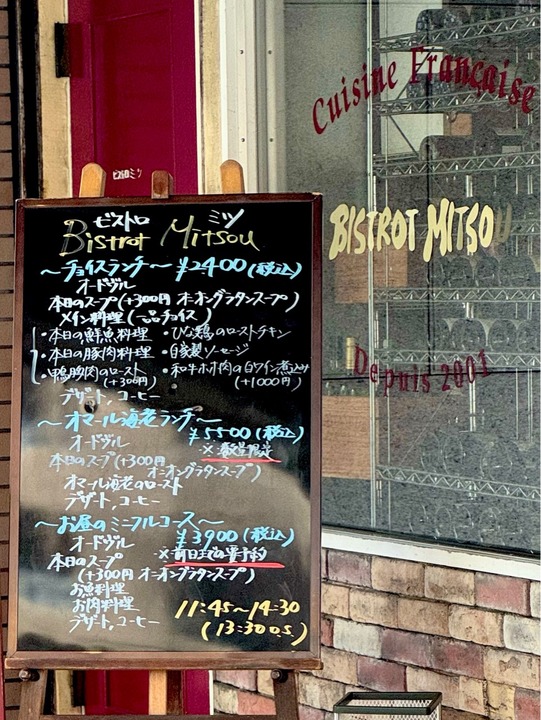 Cuisine Française
BISTROT MITSOU
Depuis 2001
ビストロ ミツ
Bistrot Mitsou
～チョイスランチ～ ¥2400(税込)
オードヴル
本日のスープ(+300円 オニオングラタンスープ)
メイン料理(一品チョイス)
・本日の鮮魚料理 ・ひな鶏のローストチキン
・本日の豚肉料理 ・自家製ソーセージ
・鴨胸肉のロースト ・和牛ホホ肉の白ワイン煮込み
(+300円) (+1000円)
デザート、コーヒー
～オマール海老ランチ～
¥5500(税込)
オードヴル ※数量限定
本日のスープ(+300円
オニオングラタンスープ)
オマール海老のロースト
デザート、コーヒー
～お昼のミニフルコース～
¥3900(税込)
オードヴル
※前日までの要予約
本日のスープ
(+300円 オニオングラタンスープ)
お魚料理
お肉料理
デザート、コーヒー
11:45～14:30
(13:30 o.s)